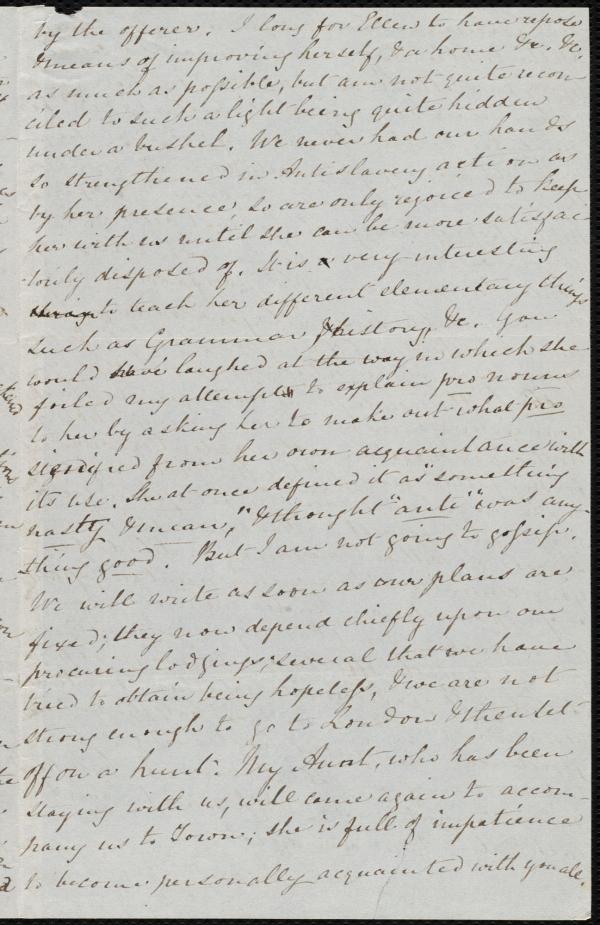 by the offerer. I long for Ellen to have repose
& means of improving herself, & a home &c. &c.
as much as possible, but am not quite recon-
ciled to such a light being quite hidden
under a bushel. We never had our hands
so strengthened in Antislavery action as
by her presence, so are only rejoiced to keep
her with us until she can be more satisfac-
torily disposed of. It is a very interesting
to teach her different elementary things
such as Grammar & history, &c. You
would have laughed at the way in which she
foiled my attempts to explain pronouns
to her by asking her to make out what pro
signified from her own acquaintance with
its use. She at once defined it as "something
nasty & mean," & thought "anti" was any-
thing good. But I am not going to gossip.
We will write as soon as our plans are
fixed; they now depend chiefly upon our
procuring lodgings; several that we have
tried to obtain being hopeless, & we are not
strong enough to go to London & then set
off on a hunt. My Aunt, who has been
staying with us, will come again to accom-
pany us to Town; she is full of impatience
to become personally acquainted with you all.